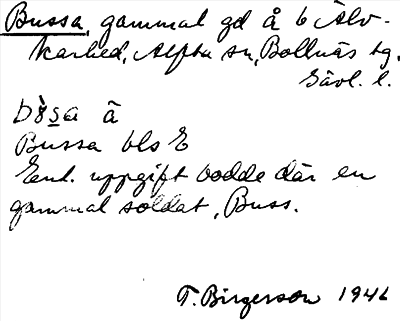 Bussa, gammal gd å 6 Älv-
karhed, Alfta sn, Bollnäs tg.
Gävl. l.
bus̱a â
Bussa bls E
Enl. uppgift bodde där en
gammal soldat, Buss.
T. Birgerson 1946